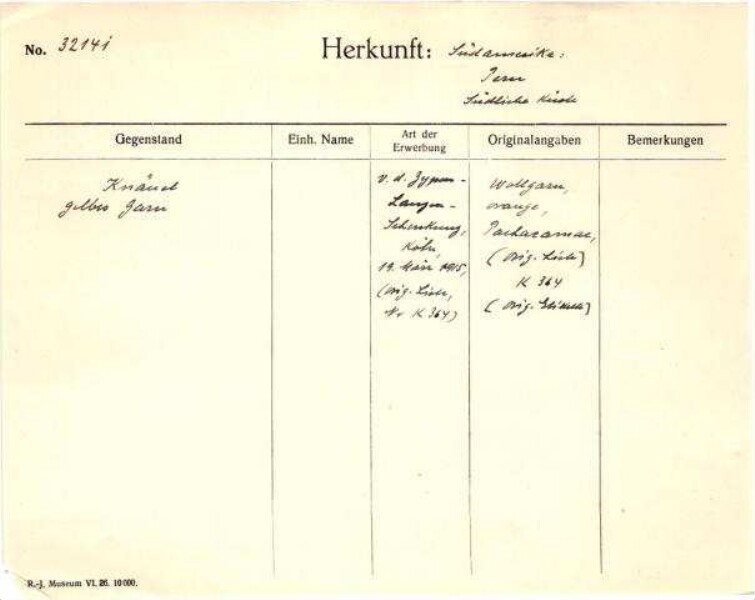 No. 32141
Herkunft: Südamerika:
Peru
Südliche Küste
Gegenstand
Einh. Name
Art der
Erwerbung
Originalangaben
Bemerkungen
Knäuel
gelbes Garn
v. d. Zypen-
Langen-
Schenkung,
Köln,
19. März 1915,
(orig. Liste,
Nr K 364)
Wollgarn,
orange,
Pachacamac,
(orig. Liste)
K 364
(orig. Etikett)
R.-J. Museum VI. 26. 10000.